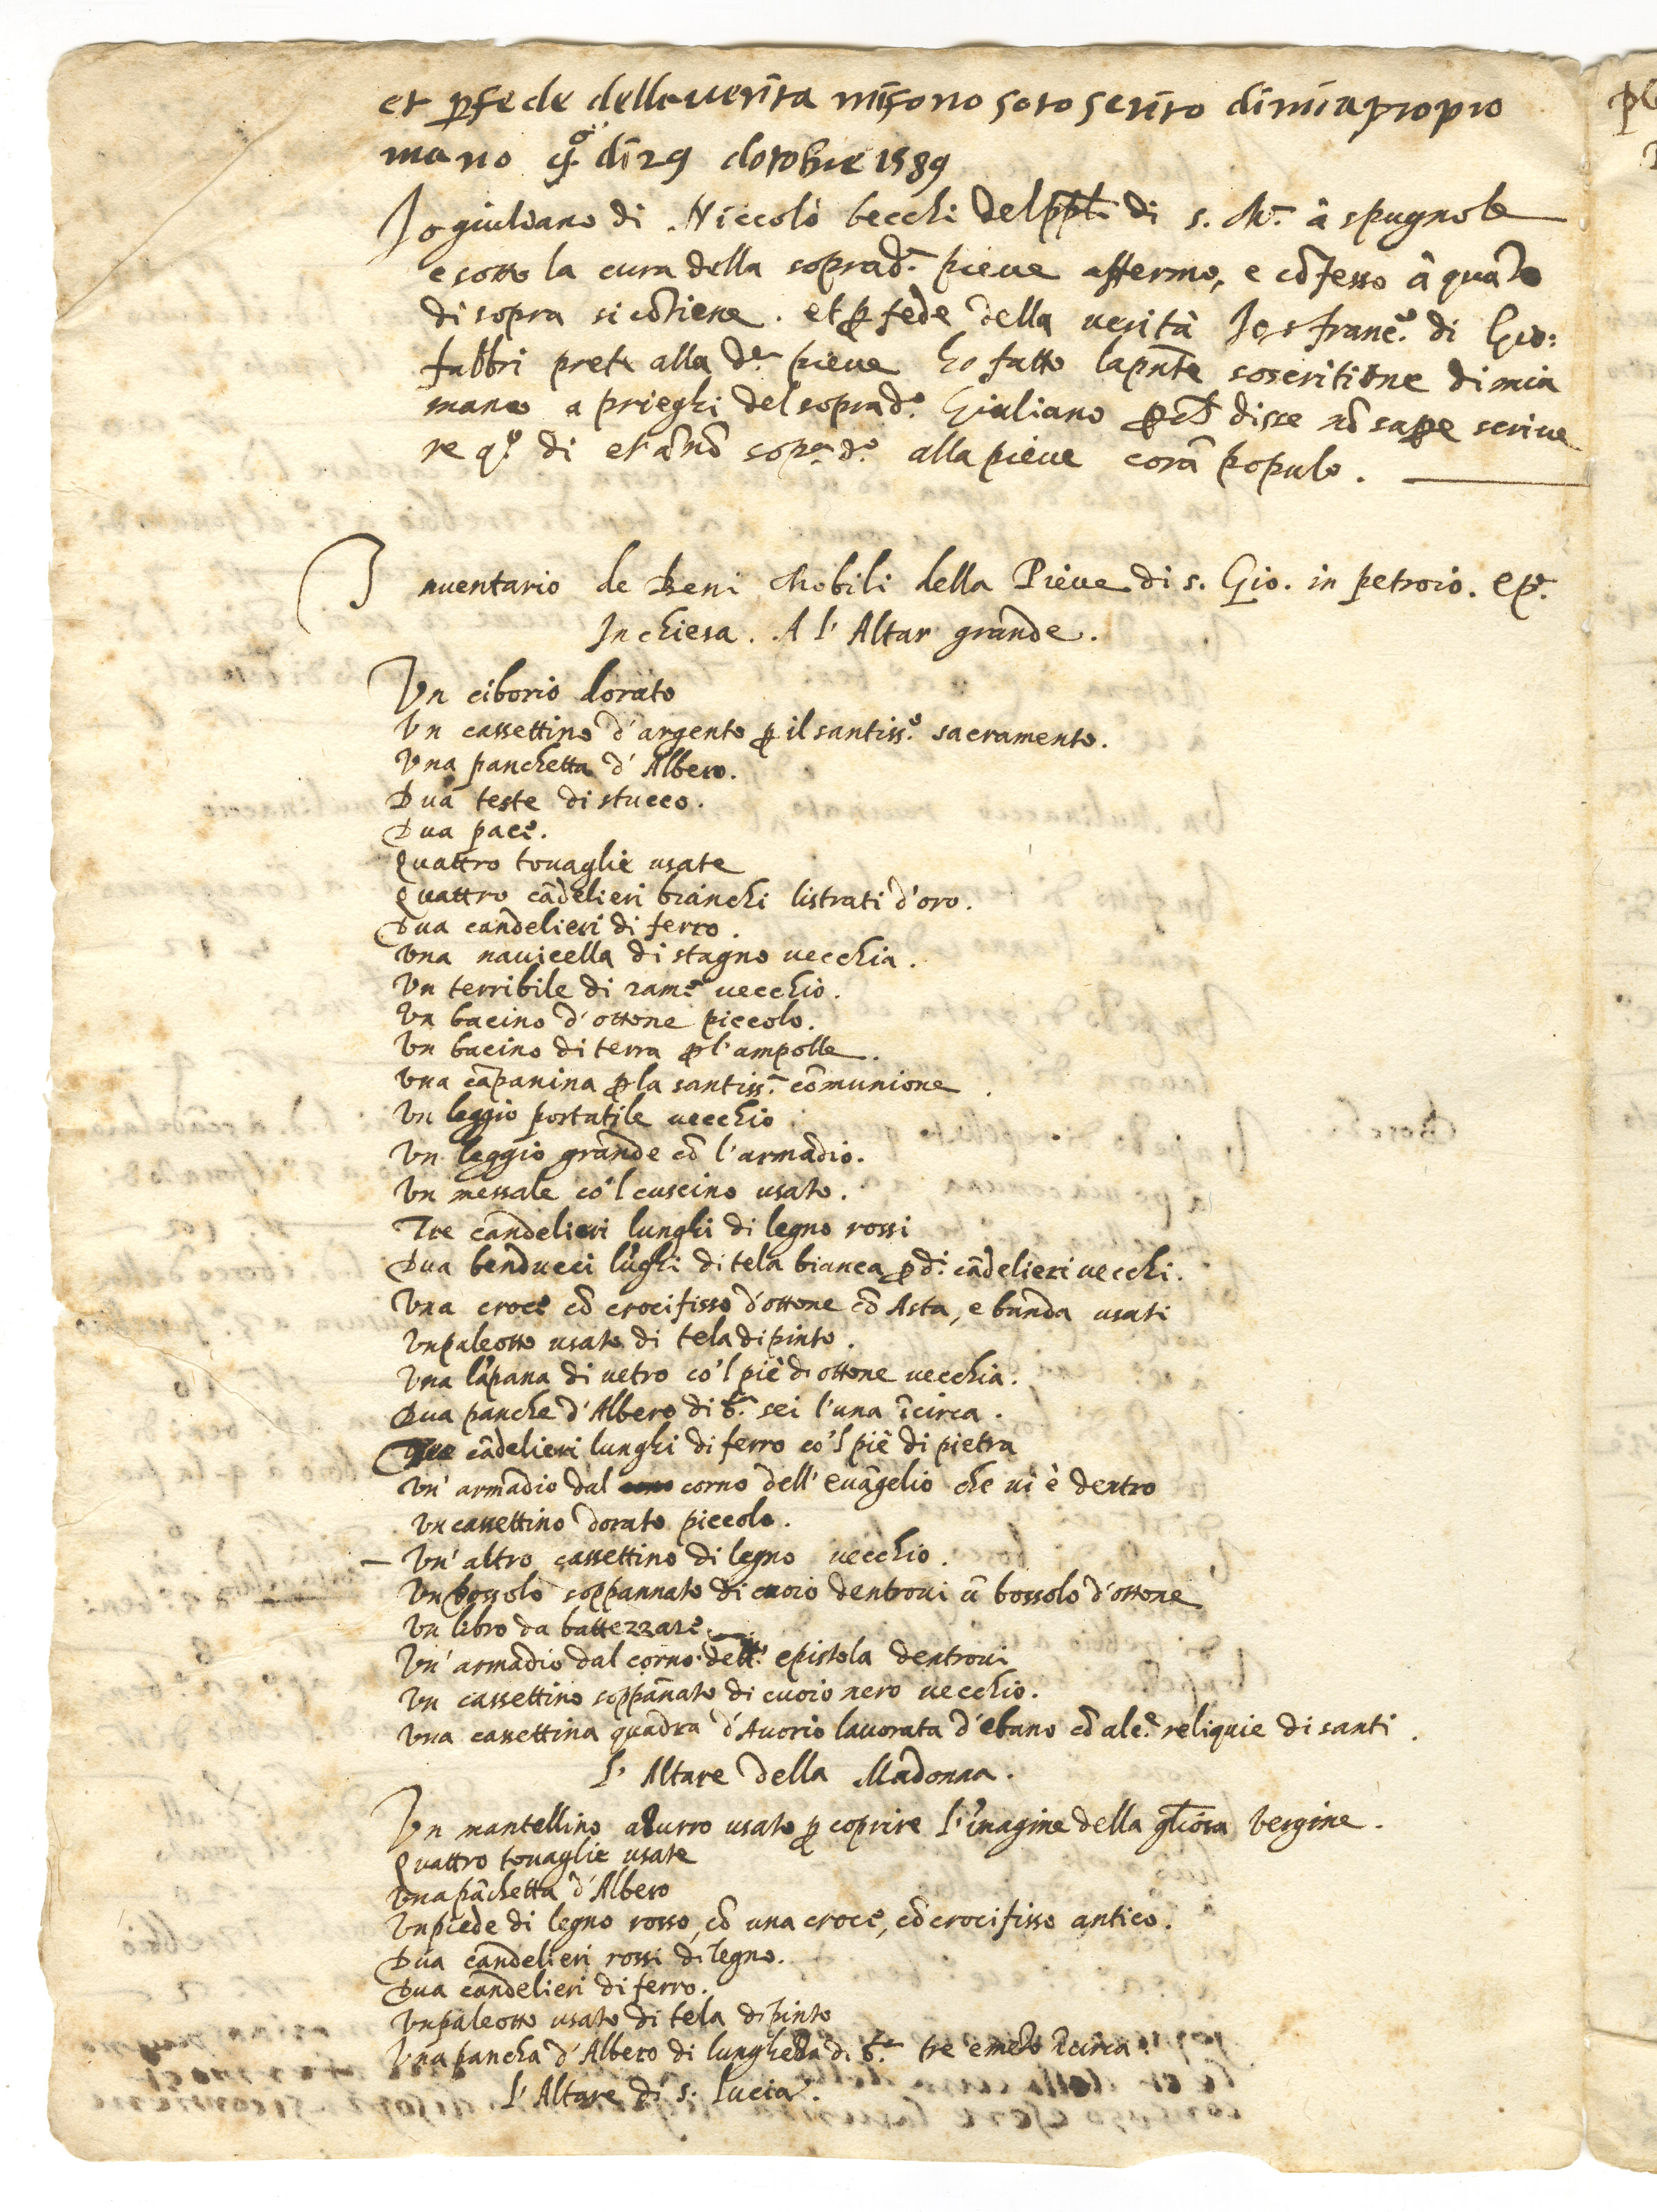 et p fede della verita mi sono soto scrito di mia propio
mano q.o di 29 dotobre 1589
Io giuliano di Niccolò becchi del ppl. di s. M.a à spugnole
e sotto la cura della soprad.a pieve affermo, e cõfesso â quãto
di sopra si cõtiene. et p fede della verità Io s franc.o di Gio:
fabbri prete alla d.a pieve ho fatto la pñte soscritione di mia
mano a prieghi del soprad.o Giuliano p chẽ disse nõ sape scrive
re q.o di et ãno sop.a d.o alla pieve corã populo.
Inventario de Beni Mobili della Pieve di s. Gio. in petroio. e p.a
In chiesa. A l'Altar grande.
Un ciborio dorato
Un cassettino d'argento p il santiss.o sacramento.
Una panchetta d'Albero.
Dua teste di stucco.
Dua pace.
Quattro tovaglie usate
Quattro cãdelieri bianchi listrati d'oro.
Dua candelieri di ferro.
Una navicella di stagno vecchia.
Un terribile di rame vecchio.
Un bacino d'ottone piccolo.
Un bacino di terra p l'ampolle.
Una cãpanina p la santiss.a cõmunione.
Un leggio portatile vecchio
Un leggio grande cõ l'armadio.
Un messale co'l cuscino usato.
Tre candelieri lunghi di legno rossi
Dua benducci lũghi di tela bianca p d.i cãdelieri vecchi.
Una croce cõ crocifisso d'ottone cõ Asta, e banda usati
Un paleotto usato di tela dipinto.
Una lãpana di vetro co'l piè di ottone vecchia.
Dua panche d'Albero di b.a sei l'una ĩcirca.
Tre cãdelieri lunghi di ferro co'l piè di pietra
Un'armadio dal corno dell'evãgelio che vi è dentro
Un cassettino dorato piccolo.
Un'altro cassettino di legno vecchio.
Un bossolo soppannato di cuoio dentrovi ũ bossolo d'ottone
Un libro da battezzare.
Un'armadio dal corno dell' epistola dentrovi
Un cassettino soppãnato di cuoio nero vecchio.
Una cassettina quadra d'Avorio lavorata d'ebano cõ alc.e reliquie di santi.
L'Altare della Madonna.
Un mantellino azurro usato p coprire l'imagine della gl̃iosa Vergine.
Quattro tovaglie usate
Una pãchetta d'Albero
Un piede di legno rosso, cõ una croce, cõ crocifisso antico.
Dua candelieri rossi di legno.
Dua candelieri di ferro.
Un paleotto usato di tela dipinto
Una pancha d'Albero di lungheza di b.a tre e mezo ĩcirca.
L'Altare di s. Lucia.